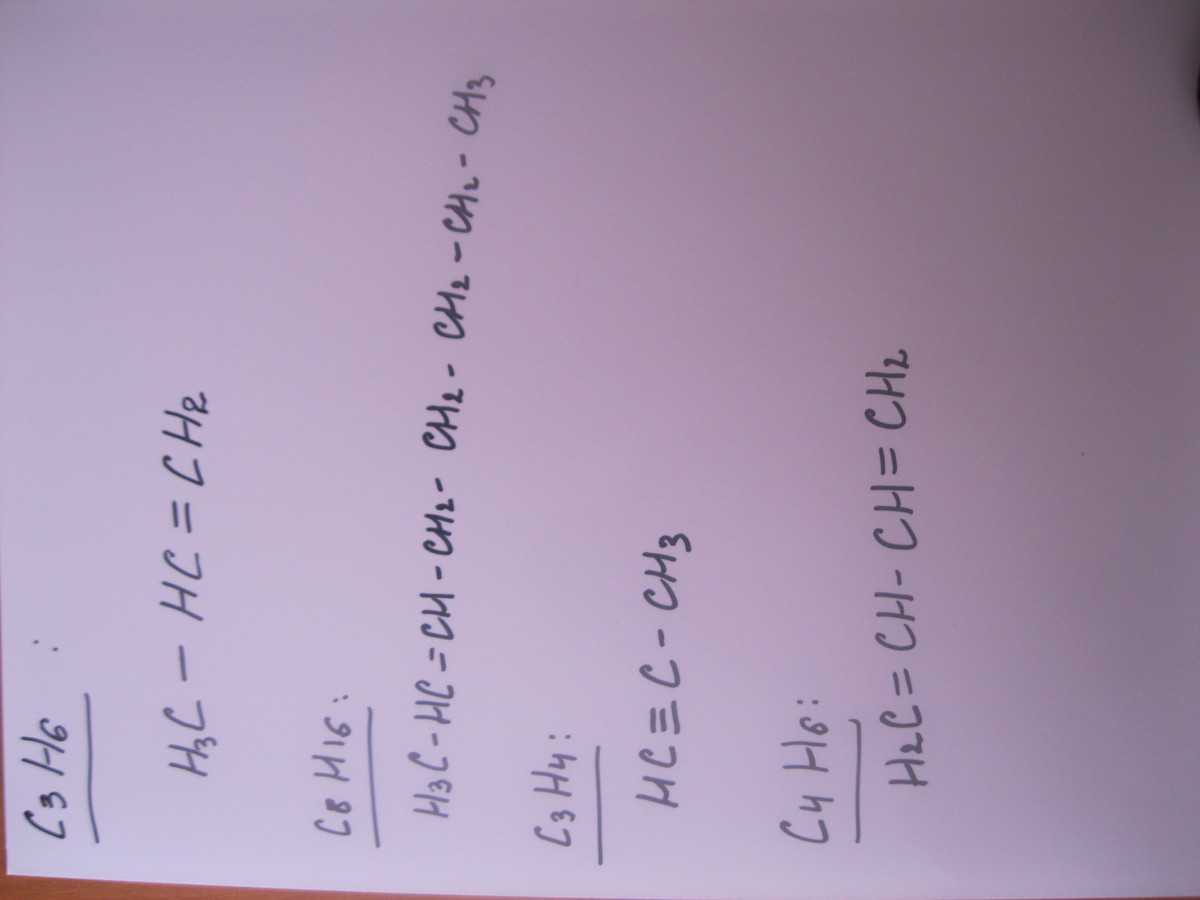 C3H6 :
H3C - HC = CH2
C8H16:
H3C - HC = CH - CH2 - CH2 - CH2 - CH2 - CH3
C3H4:
HC ≡ C - CH3
C4H6:
H2C = CH - CH = CH2